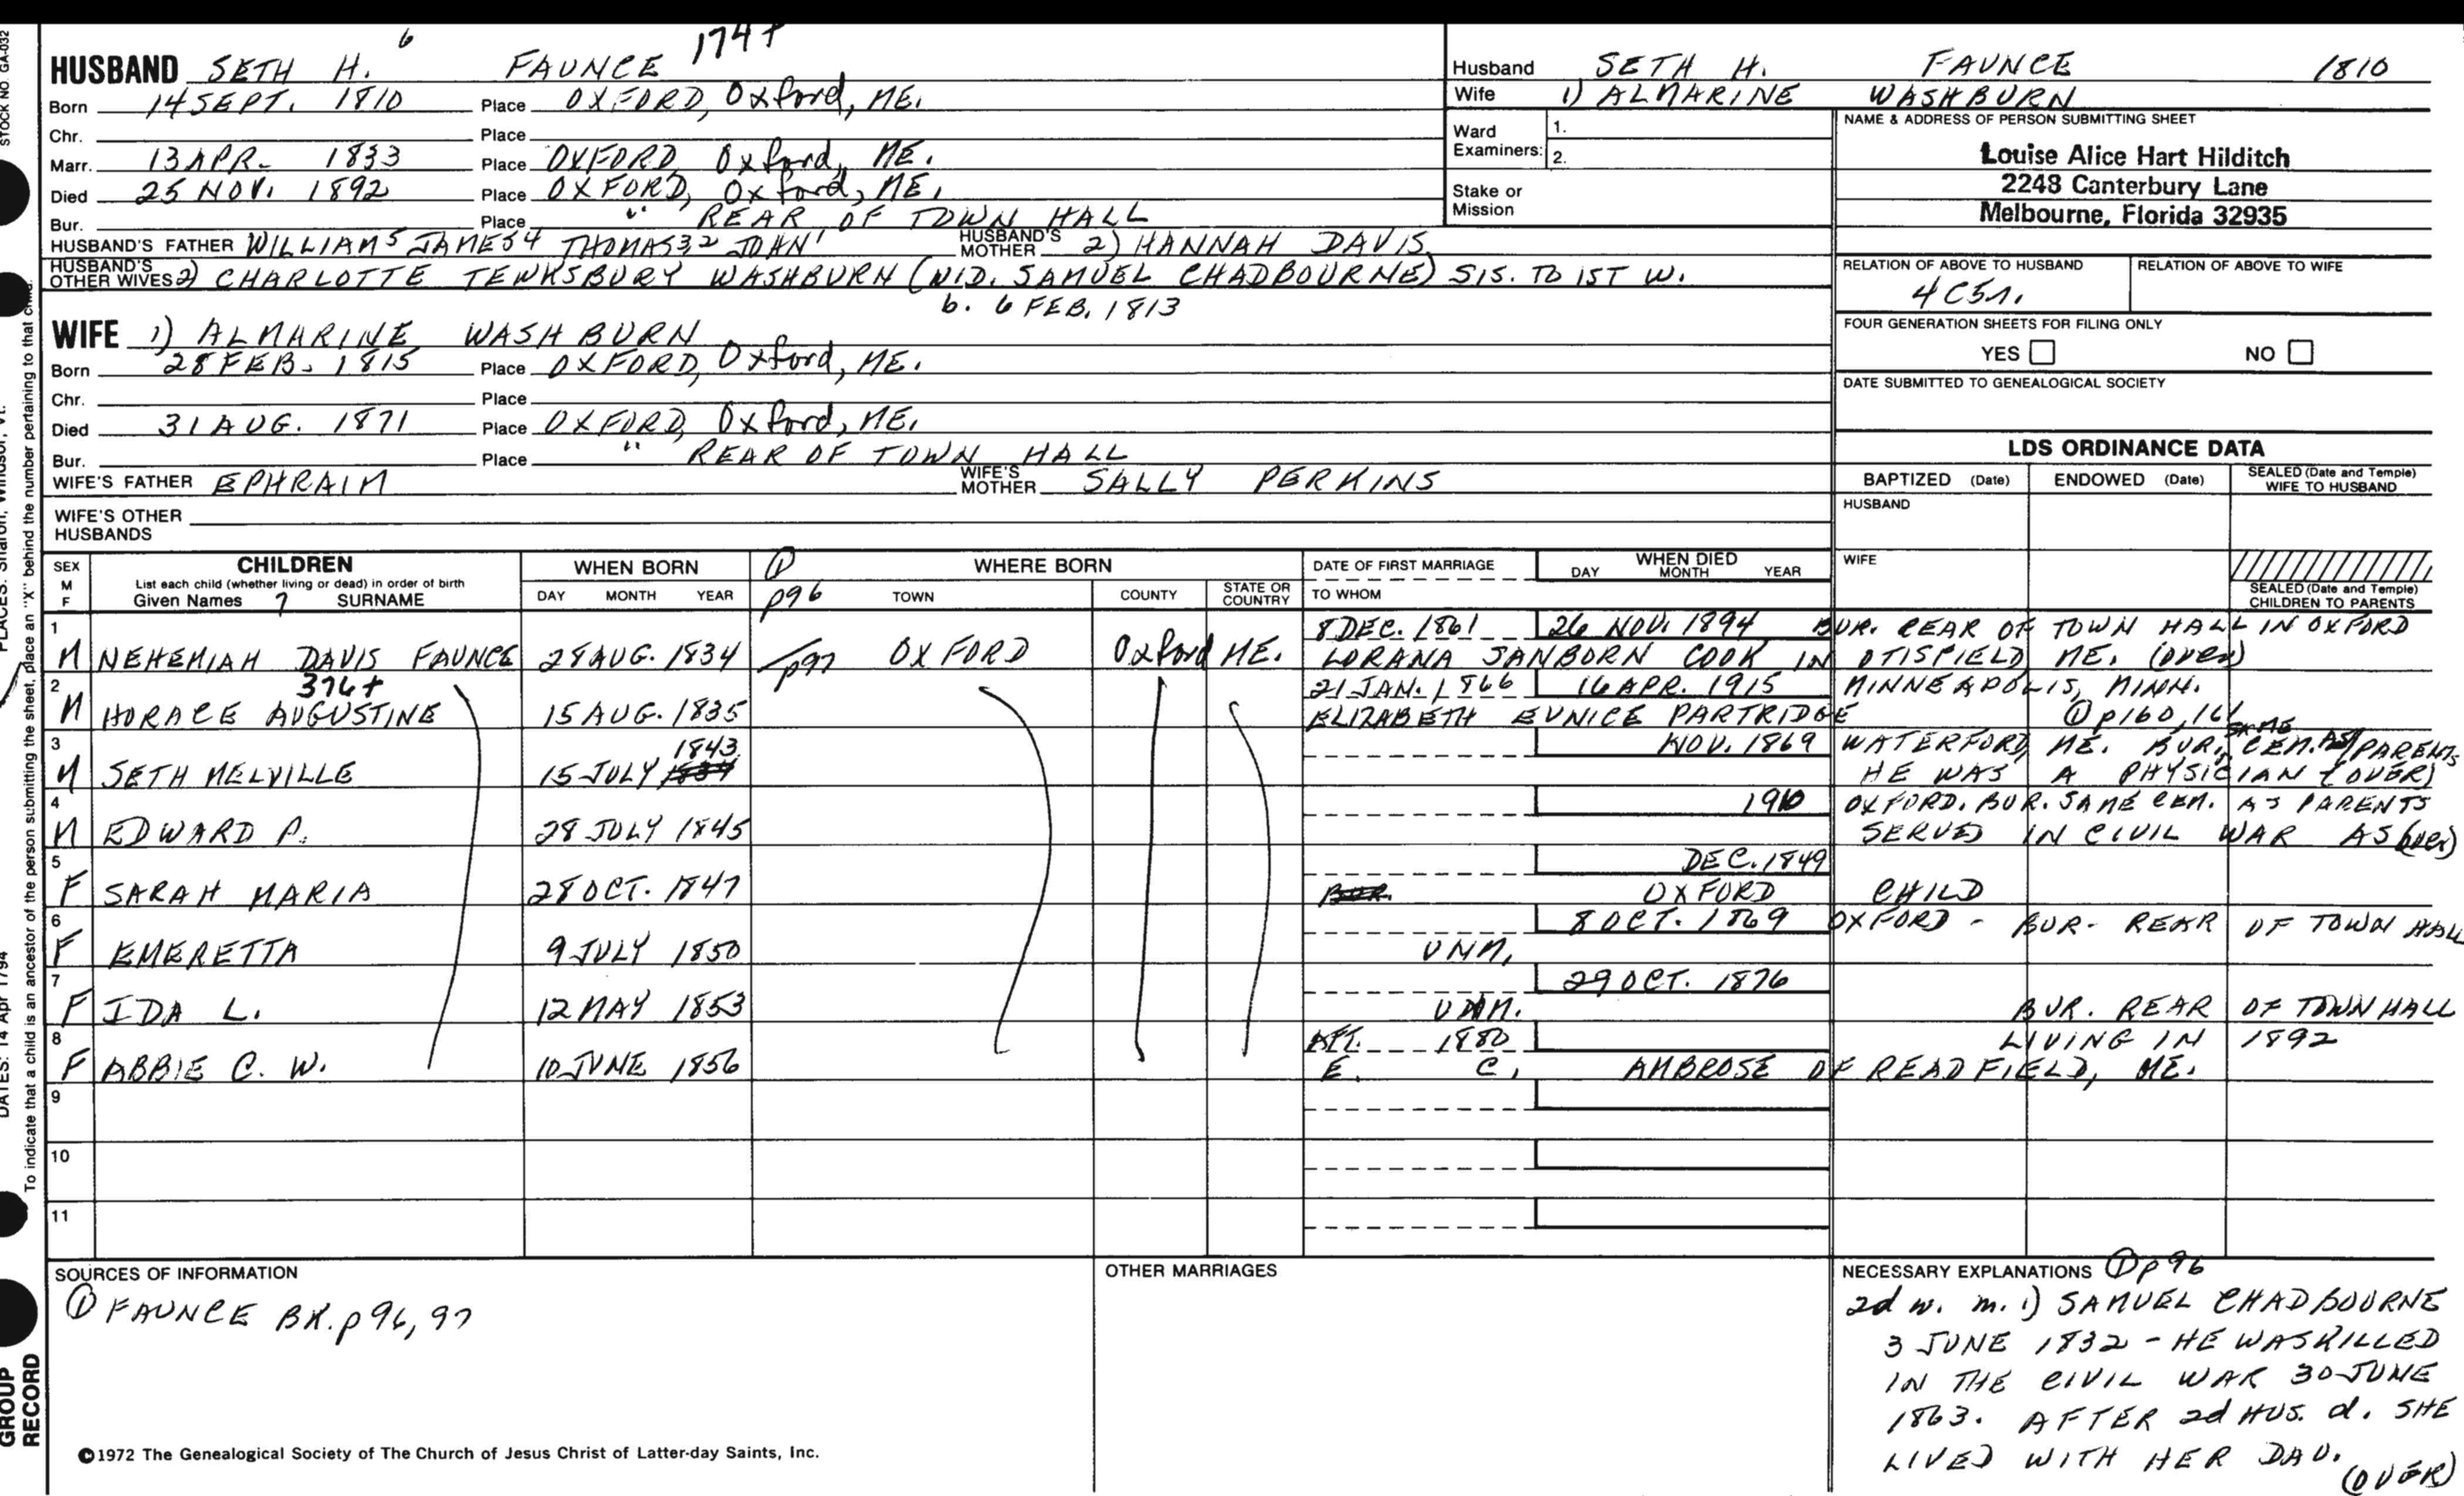 STOCK NO. GA-032
HUSBAND SETH H. 6 FAUNCE 174+
Born 14 SEPT. 1810 Place OXFORD, Oxford, ME.
Chr. Place
Marr. 13 APR. 1833 Place OXFORD, Oxford, ME.
Died 25 NOV. 1892 Place OXFORD, Oxford, ME.
Bur. Place " REAR OF TOWN HALL
HUSBAND'S FATHER WILLIAM5 JAMES4 THOMAS3,2 JOHN1 HUSBAND'S MOTHER 2) HANNAH DAVIS
HUSBAND'S OTHER WIVES 2) CHARLOTTE TEWKSBURY WASHBURN (WID. SAMUEL CHADBOURNE) SIS. TO 1ST W.
b. 6 FEB. 1813
WIFE 1) ALMARINE WASHBURN
Born 28 FEB. 1815 Place OXFORD, Oxford, ME.
Chr. Place
Died 31 AUG. 1871 Place OXFORD, Oxford, ME.
Bur. Place " REAR OF TOWN HALL
WIFE'S FATHER EPHRAIM WIFE'S MOTHER SALLY PERKINS
WIFE'S OTHER HUSBANDS
Husband SETH H. FAUNCE 1810
Wife 1) ALMARINE WASHBURN
Ward Examiners: 1. 2.
Stake or Mission
NAME & ADDRESS OF PERSON SUBMITTING SHEET
Louise Alice Hart Hilditch
2248 Canterbury Lane
Melbourne, Florida 32935
RELATION OF ABOVE TO HUSBAND RELATION OF ABOVE TO WIFE
4C5r.
FOUR GENERATION SHEETS FOR FILING ONLY
YES NO
DATE SUBMITTED TO GENEALOGICAL SOCIETY
LDS ORDINANCE DATA
BAPTIZED (Date) ENDOWED (Date) SEALED (Date and Temple) WIFE TO HUSBAND
HUSBAND
WIFE
SEALED (Date and Temple) CHILDREN TO PARENTS
SEX M F CHILDREN WHEN BORN ① WHERE BORN DATE OF FIRST MARRIAGE WHEN DIED
List each child (whether living or dead) in order of birth
Given Names 7 SURNAME DAY MONTH YEAR p96 TOWN COUNTY STATE OR COUNTRY TO WHOM DAY MONTH YEAR
1 8 DEC. 1861 26 NOV. 1894 BUR. REAR OF TOWN HALL IN OXFORD
M NEHEMIAH DAVIS FAUNCE 28 AUG. 1834 p97 OXFORD Oxford ME. LORANA SANBORN COOK IN OTISFIELD, ME. (over)
2 376+ 21 JAN. 1866 16 APR. 1915 MINNEAPOLIS, MINN.
M HORACE AUGUSTINE 15 AUG. 1835 ELIZABETH EUNICE PARTRIDGE ① p160, 161
3 1843 NOV. 1869 WATERFORD, ME. BUR. SAME CEM. AS PARENTS
M SETH MELVILLE 15 JULY HE WAS A PHYSICIAN (OVER)
4 1910 OXFORD. BUR. SAME CEM. AS PARENTS
M EDWARD P. 28 JULY 1845 SERVED IN CIVIL WAR AS (over)
5 DEC. 1849
F SARAH MARIA 28 OCT. 1847 BUR. OXFORD CHILD
6 8 OCT. 1869 OXFORD - BUR. REAR OF TOWN HALL
F EMERETTA 9 JULY 1850 UNM.
7 29 OCT. 1876
F IDA L. 12 MAY 1853 UNM. BUR. REAR OF TOWN HALL
8 AFT. 1880 LIVING IN 1892
F ABBIE C. W. 10 JUNE 1856 E. C. AMBROSE OF READFIELD, ME.
9
10
11
SOURCES OF INFORMATION
① FAUNCE BK. p96, 97
OTHER MARRIAGES
NECESSARY EXPLANATIONS ① p96
2d w. m. 1) SAMUEL CHADBOURNE
3 JUNE 1832 - HE WAS KILLED
IN THE CIVIL WAR 30 JUNE
1863. AFTER 2d HUS. d. SHE
LIVED WITH HER DAU.
(OVER)
©1972 The Genealogical Society of The Church of Jesus Christ of Latter-day Saints, Inc.
To indicate that a child is an ancestor of the person submitting the sheet, place an "X" behind the number pertaining to that child.
PLACES: Sharon, Windsor, Vt.
DATES: 14 Apr 1794
GROUP
RECORD